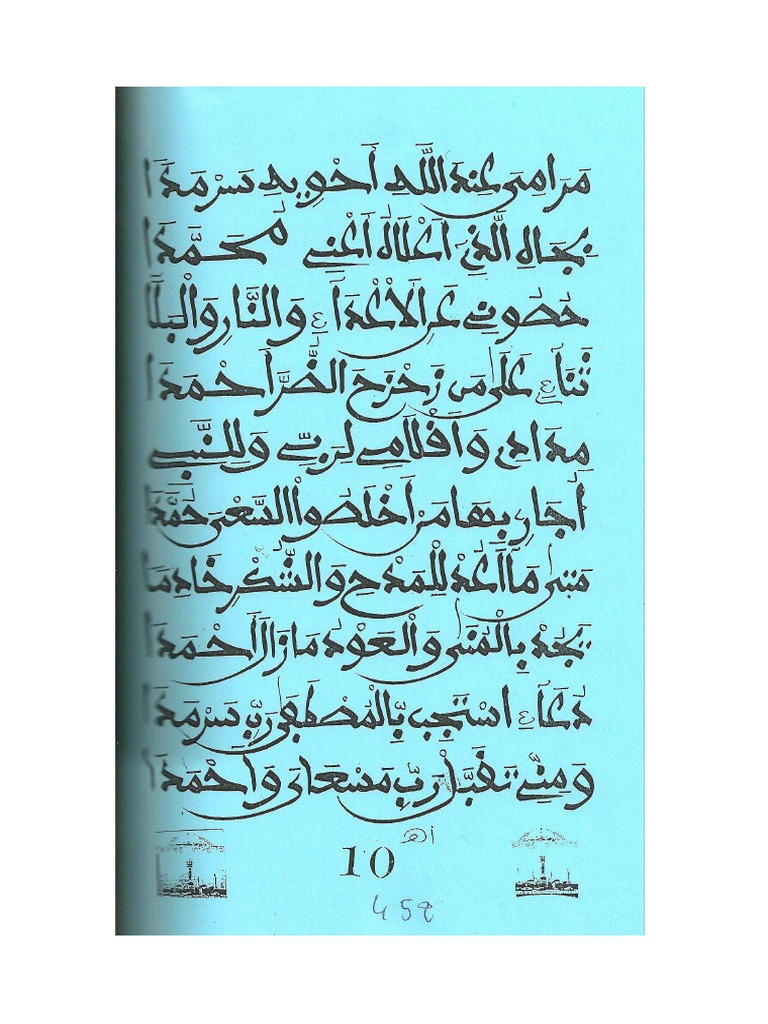 مَرَامِىَ عِندَ اللَّهِ أَحْوِيهِ سَرْمَدَا
بِجَاهِ الَّذِى أَعْلَاهُ أَعْنِى مُحَمَّدَا
حُصُونِى عَنِ الْأَعْدَاءِ وَالنَّارِ وَالْبَلَا
ثَنَاءِ عَلَى مَن زَحْزَحَ الضُّرَّ أَحْمَدَا
مِدَادِى وَأَقْلَامِى لِرَبِّى وَلِلنَّبِى
أُجَارِ بِهَا مَنْ أَخْلَصُواْ السَّعْىَ حُمَّدَا
مَتَى مَا أَعُدْ لِلْمَدْحِ وَالشُّكْرِ خَادِمَا
يَجُدْ بِالْمُنَى وَالْعَوْدُ مَازَالَ أَحْمَدَا
دُعَاءِ اسْتَجِبْ بِالْمُصْطَفَى رَبِّ سَرْمَدَا
وَمِنِّى تَقَبَّلْ رَبِّ مَسْعَاىَ وَاحْمَدَا
اهـ
10
458